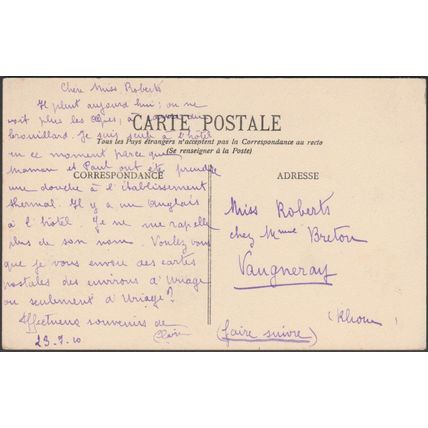 Chère Miss Roberts
Il pleut aujourd'hui; on ne
voit plus les Alpes, à cause du
brouillard. Je suis seule à l'hôtel
en ce moment parce que
Maman et Paul ont été prendre
une douche à l'établissement
thermal. Il y a un Anglais
à l'hôtel. Je ne me rappelle
plus de son nom. Voulez vous
que je vous envoie des cartes
postales des environs d'Uriage
ou seulement d'Uriage?
Affectueux souvenirs de
Claire
29-7-10
CARTE POSTALE
Tous les Pays étrangers n'acceptent pas la Correspondance au recto
(Se renseigner à la Poste)
CORRESPONDANCE
ADRESSE
Miss Roberts
chez Mme Breton
Vaugneray
(Rhône)
(faire suivre)